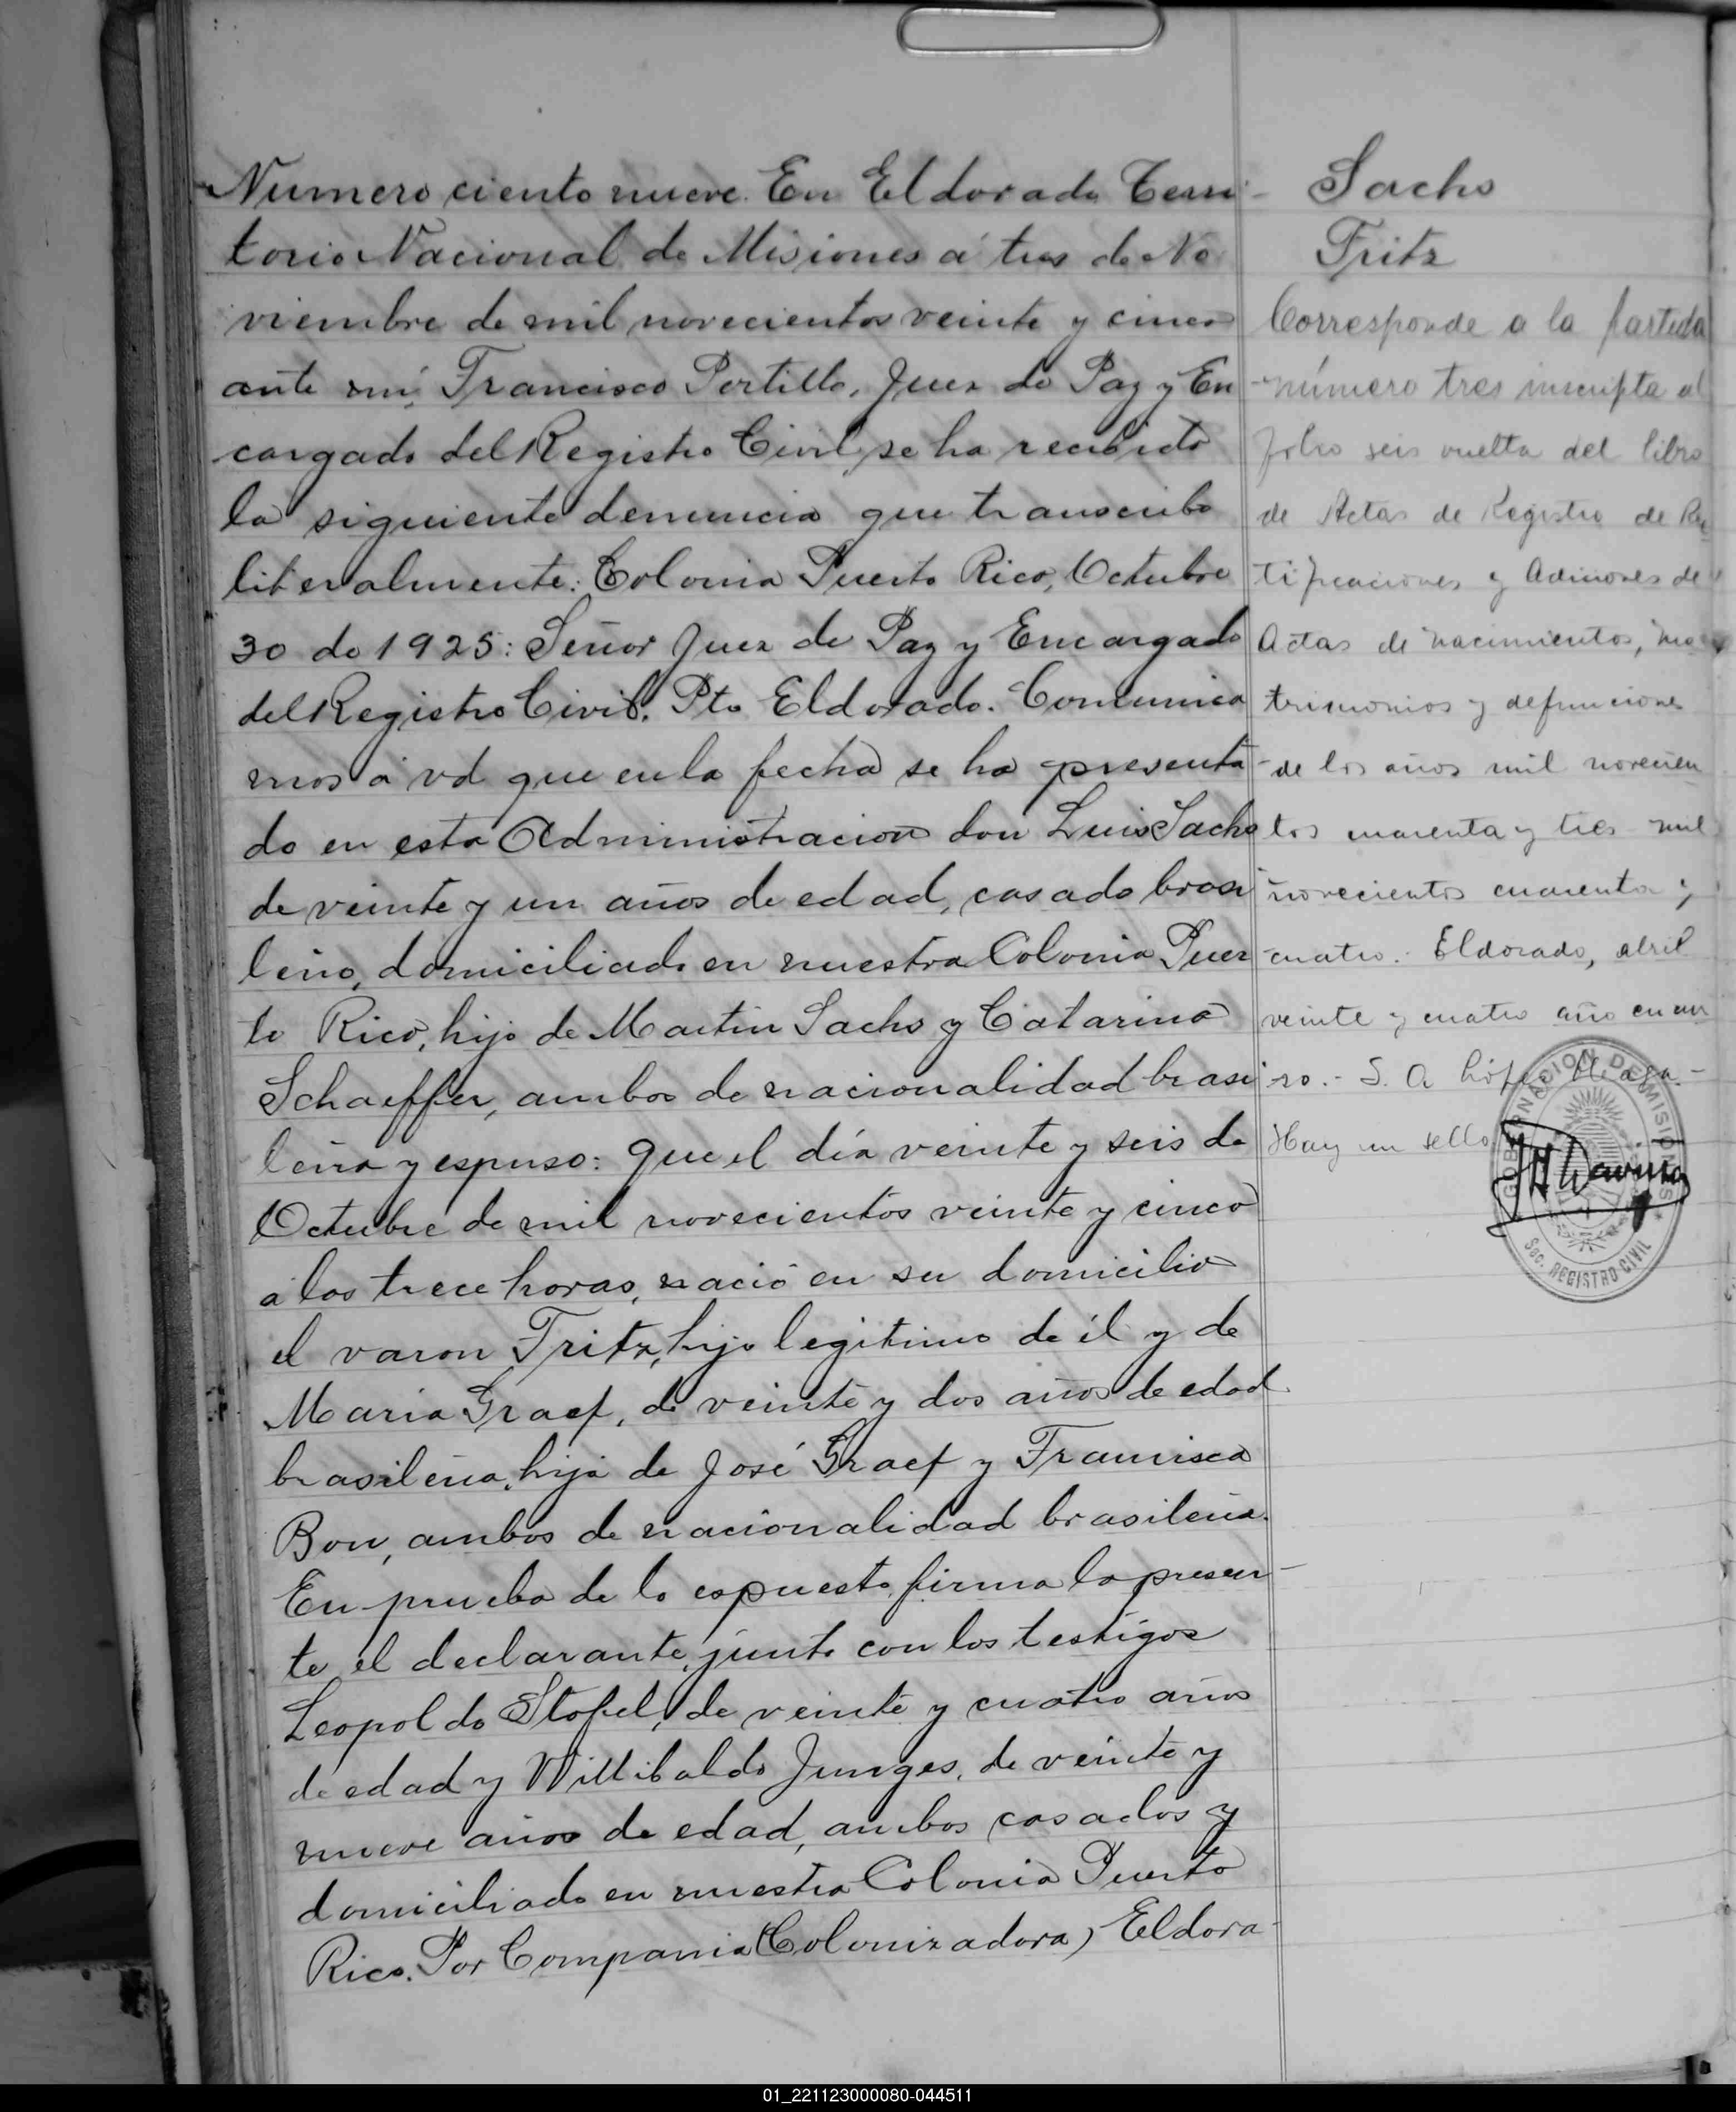 Numero ciento nueve. En Eldorado Terri-
torio Nacional de Misiones á tres de No
viembre de mil novecientos veinte y cinco
ante mi, Francisco Portillo, Juez de Paz y En
cargado del Registro Civil, se ha recibido
la siguiente denuncia que transcribo
literalmente: Colonia Puerto Rico, Octubre
30 de 1925: Señor Juez de Paz y Encargado
del Registro Civil, Pto Eldorado. Comunica
mos á vd que en la fecha se ha presenta-
do en esta Administracion don Luis Sachs
de veinte y un años de edad, casado brasi
leño, domiciliado en nuestra Colonia Puer
to Rico, hijo de Martin Sachs y Catarina
Schaeffer, ambos de nacionalidad brasi
leña y espuso: que el día veinte y seis de
Octubre de mil novecientos veinte y cinco
a las trece horas, nació en su domicilio
el varon Fritz, hijo legitimo de él y de
Maria Graef, de veinte y dos años de edad
brasileña, hija de José Graef y Francisca
Bon, ambos de nacionalidad brasileña.
En prueba de lo espuesto firma la presen-
te el declarante, junto con los testigos
Leopoldo Stofel, de veinte y cuatro años
de edad y Willibaldo Junges, de veinte y
nueve años de edad, ambos casados y
domiciliado en nuestra Colonia Puerto
Rico. Por Compania (Colonizadora) Eldora-
Sachs
Fritz
Corresponde a la partida
número tres inscripta al
folio seis vuelta del libro
de Actas de Registro de Rec
tificaciones y Adiciones de
Actas de nacimientos, ma
trimonios y defunciones
de los años mil novecien
tos cuarenta y tres mil
novecientos cuarenta y
cuatro.- Eldorado, abril
veinte y cuatro año en cur
so.- S. A. López
Hay un sello
GOBERNACION DE MISIONES
Sec. REGISTRO CIVIL
01_221123000080-044511